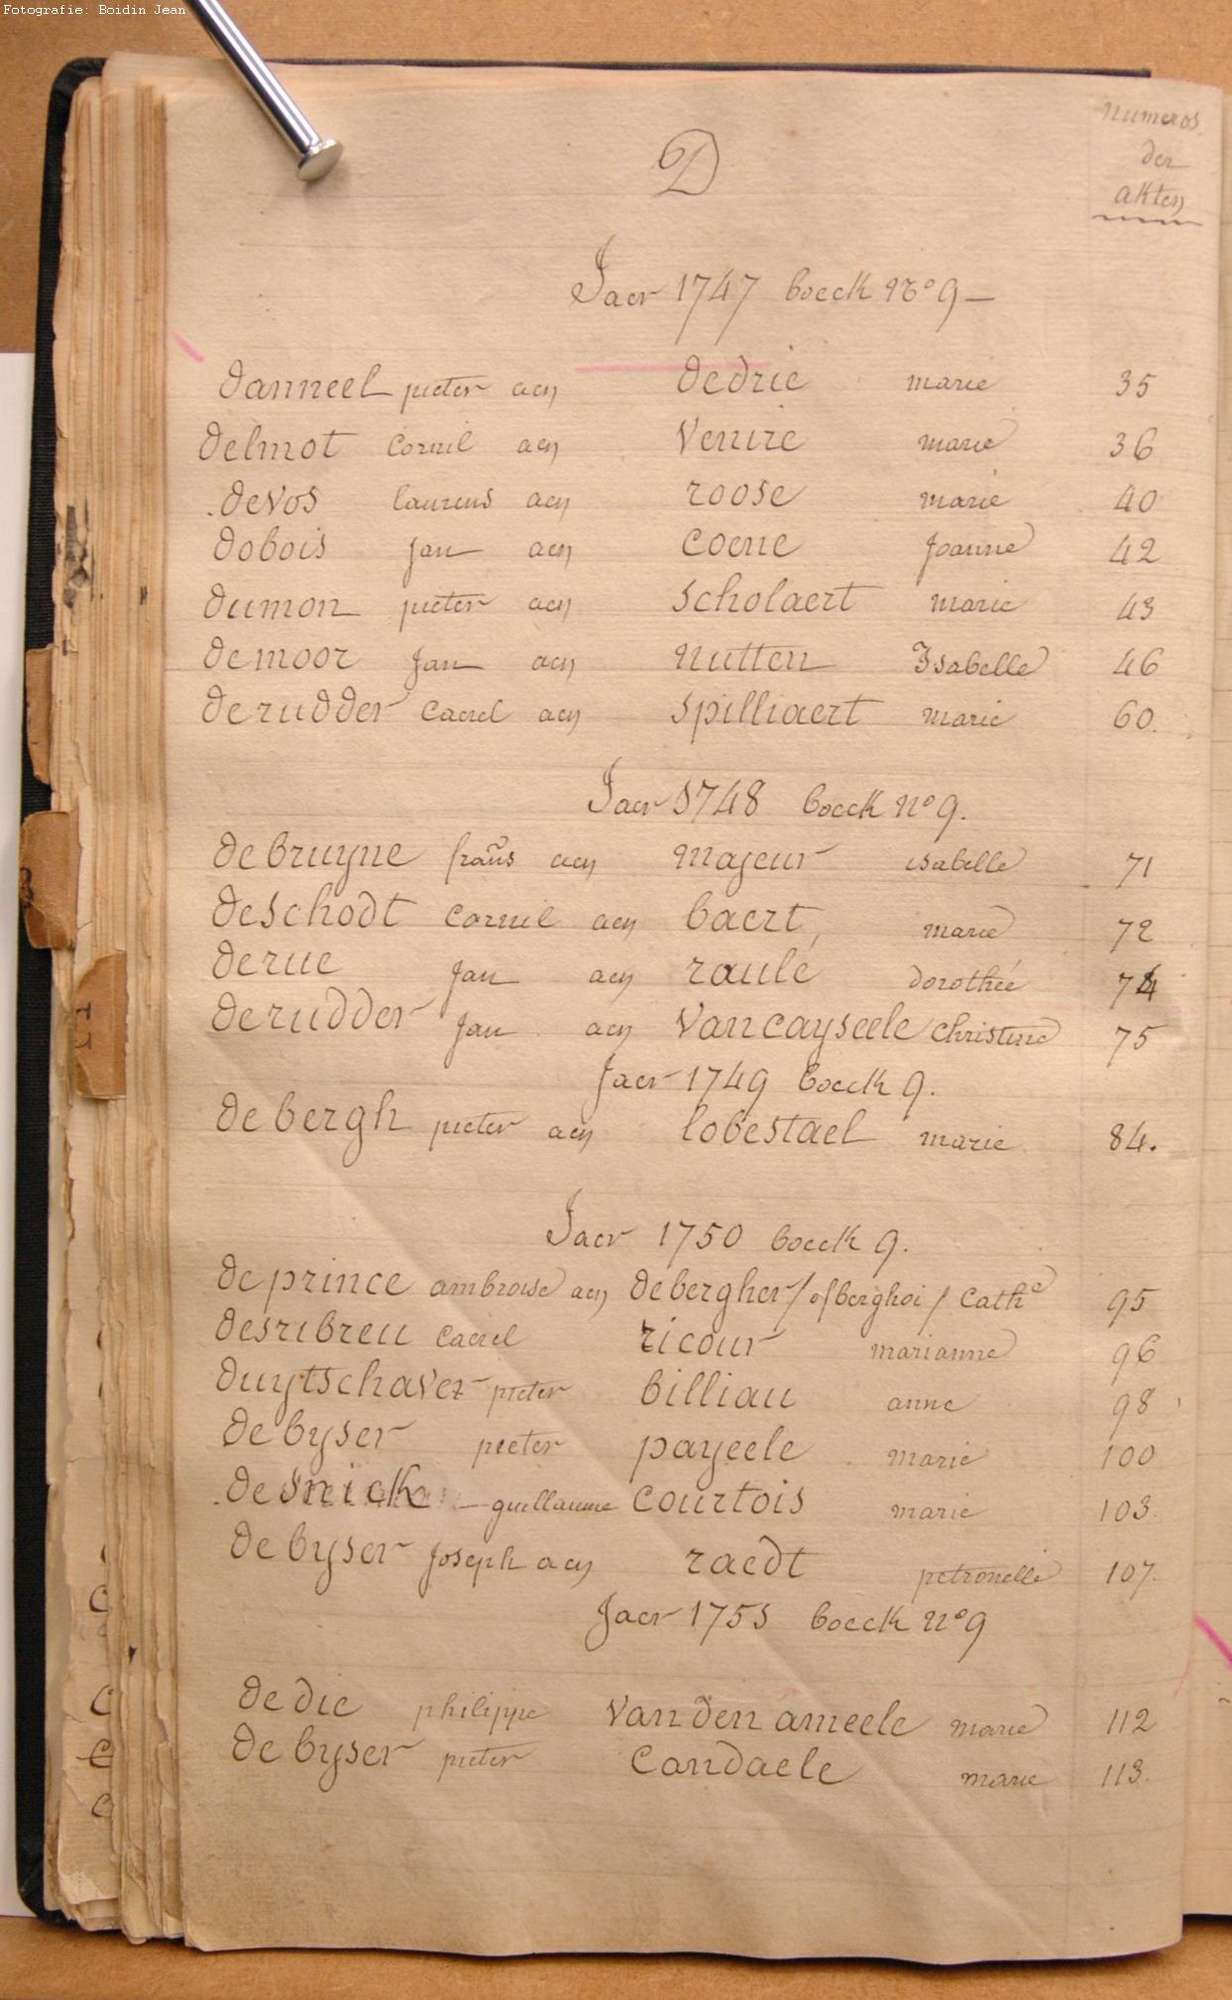 Fotografie: Boidin Jean
numeros
der
akten
D
Jaer 1747 boeck No 9 —
danneel pieter aen dedrie marie 35
delmot Cornil aen Venire marie 36
devos laurens aen roose marie 40
dobois jan aen coene joanne 42
dumon pieter aen scholaert marie 43
demoor jan aen nutten Isabelle 46
derudder Caerel aen spilliaert marie 60.
Jaer 1748 boeck no 9.
debruyne frans aen majeur isabelle 71
deschodt Cornil aen baert, marie 72
derue jan aen raulé dorothée 74
derudder jan aen Vancayseele Christine 75
jaer 1749 boeck 9.
debergh pieter aen lobestael marie 84.
Jaer 1750 boeck 9.
deprince ambroise aen debergher / of berghoi / Cathe 95
desribreu Caerel ricour marianne 96
duytschaver pieter billiau anne 98
debyser pieter payeele marie 100
desnick guillaume courtois marie 103.
debyser joseph aen raedt petronelle 107.
jaer 1751 boeck no 9
dedie philippe Vanden ameele marie 112
debyser pieter Candaele marie 113.